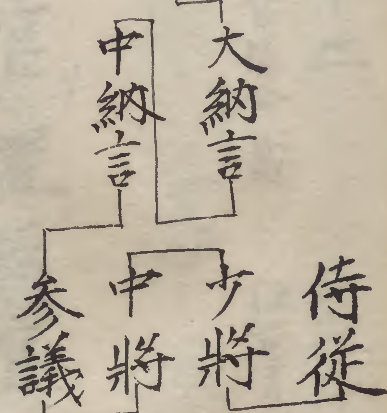 大納言
中納言
侍從
少將
中將
参議